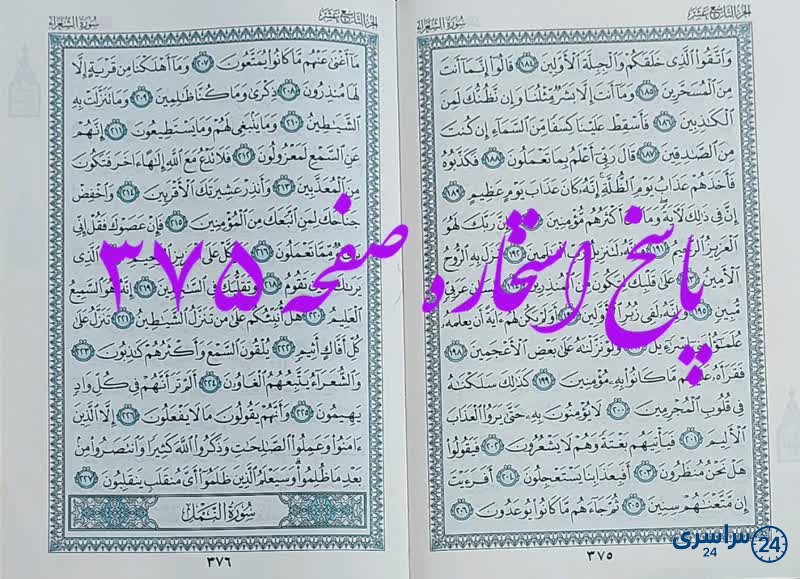 الجزء التاسع عشر
سورة الشعراء
وَاتَّقُوا الَّذِي خَلَقَكُمْ وَالْجِبِلَّةَ الْأَوَّلِينَ ١٨٤ قَالُوا إِنَّمَا أَنتَ
مِنَ الْمُسَحَّرِينَ ١٨٥ وَمَا أَنتَ إِلَّا بَشَرٌ مِّثْلُنَا وَإِن نَّظُنُّكَ لَمِنَ
الْكَاذِبِينَ ١٨٦ فَأَسْقِطْ عَلَيْنَا كِسَفًا مِّنَ السَّمَاءِ إِن كُنتَ
مِنَ الصَّادِقِينَ ١٨٧ قَالَ رَبِّي أَعْلَمُ بِمَا تَعْمَلُونَ ١٨٨ فَكَذَّبُوهُ
فَأَخَذَهُمْ عَذَابُ يَوْمِ الظُّلَّةِ إِنَّهُ كَانَ عَذَابَ يَوْمٍ عَظِيمٍ ١٨٩
إِنَّ فِي ذَٰلِكَ لَآيَةً وَمَا أَكْثَرُهُم مُّؤْمِنِينَ وَإِنَّ رَبَّكَ لَهُوَ
الْعَزِيزُ الرَّحِيمُ ١٩١ وَإِنَّهُ لَتَنزِيلُ رَبِّ الْعَالَمِينَ ١٩٢ نَزَلَ بِهِ الرُّوحُ
الْأَمِينُ ١٩٣ عَلَىٰ قَلْبِكَ لِتَكُونَ مِنَ الْمُنذِرِينَ بِلِسَانٍ عَرَبِيٍّ
مُّبِينٍ ١٩٥ وَإِنَّهُ لَفِي زُبُرِ الْأَوَّلِينَ أَوَلَمْ يَكُن لَّهُمْ آيَةً أَن يَعْلَمَهُ
عُلَمَاءُ بَنِي إِسْرَائِيلَ وَلَوْ نَزَّلْنَاهُ عَلَىٰ بَعْضِ الْأَعْجَمِينَ ١٩٨
فَقَرَأَهُ عَلَيْهِم مَّا كَانُوا بِهِ مُؤْمِنِينَ ١٩٩ كَذَٰلِكَ سَلَكْنَاهُ
فِي قُلُوبِ الْمُجْرِمِينَ ٢٠٠ لَا يُؤْمِنُونَ بِهِ حَتَّىٰ يَرَوُا الْعَذَابَ
الْأَلِيمَ ٢٠١ فَيَأْتِيَهُم بَغْتَةً وَهُمْ لَا يَشْعُرُونَ ٢٠٢ فَيَقُولُوا
هَلْ نَحْنُ مُنظَرُونَ ٢٠٣ أَفَبِعَذَابِنَا يَسْتَعْجِلُونَ ٢٠٤ أَفَرَأَيْتَ
إِن مَّتَّعْنَاهُمْ سِنِينَ ٢٠٥ ثُمَّ جَاءَهُم مَّا كَانُوا يُوعَدُونَ ٢٠٦
٣٧٥
الجزء التاسع عشر
سورة الشعراء
مَا أَغْنَىٰ عَنْهُم مَّا كَانُوا يُمَتَّعُونَ ٢٠٧ وَمَا أَهْلَكْنَا مِن قَرْيَةٍ إِلَّا
لَهَا مُنذِرُونَ ٢٠٨ ذِكْرَىٰ وَمَا كُنَّا ظَالِمِينَ ٢٠٩ وَمَا تَنَزَّلَتْ بِهِ
الشَّيَاطِينُ ٢١٠ وَمَا يَنبَغِي لَهُمْ وَمَا يَسْتَطِيعُونَ ٢١١ إِنَّهُمْ
عَنِ السَّمْعِ لَمَعْزُولُونَ ٢١٢ فَلَا تَدْعُ مَعَ اللَّهِ إِلَٰهًا آخَرَ فَتَكُونَ
مِنَ الْمُعَذَّبِينَ ٢١٣ وَأَنذِرْ عَشِيرَتَكَ الْأَقْرَبِينَ ٢١٤ وَاخْفِضْ
جَنَاحَكَ لِمَنِ اتَّبَعَكَ مِنَ الْمُؤْمِنِينَ ٢١٥ فَإِنْ عَصَوْكَ فَقُلْ إِنِّي
بَرِيءٌ مِّمَّا تَعْمَلُونَ ٢١٦ وَتَوَكَّلْ عَلَى الْعَزِيزِ الرَّحِيمِ الَّذِي
يَرَاكَ حِينَ تَقُومُ ٢١٨ وَتَقَلُّبَكَ فِي السَّاجِدِينَ ٢١٩ إِنَّهُ هُوَ السَّمِيعُ
الْعَلِيمُ ٢٢٠ هَلْ أُنَبِّئُكُمْ عَلَىٰ مَن تَنَزَّلُ الشَّيَاطِينُ ٢٢١ تَنَزَّلُ عَلَىٰ
كُلِّ أَفَّاكٍ أَثِيمٍ ٢٢٢ يُلْقُونَ السَّمْعَ وَأَكْثَرُهُمْ كَاذِبُونَ ٢٢٣
وَالشُّعَرَاءُ يَتَّبِعُهُمُ الْغَاوُونَ ٢٢٤ أَلَمْ تَرَ أَنَّهُمْ فِي كُلِّ وَادٍ
يَهِيمُونَ ٢٢٥ وَأَنَّهُمْ يَقُولُونَ مَا لَا يَفْعَلُونَ ٢٢٦ إِلَّا الَّذِينَ
آمَنُوا وَعَمِلُوا الصَّالِحَاتِ وَذَكَرُوا اللَّهَ كَثِيرًا وَانتَصَرُوا مِن
بَعْدِ مَا ظُلِمُوا وَسَيَعْلَمُ الَّذِينَ ظَلَمُوا أَيَّ مُنقَلَبٍ يَنقَلِبُونَ ٢٢٧
سورة النمل
٣٧٦
پاسخ استخاره صفحه ۳۷۵
سراسری
24
24